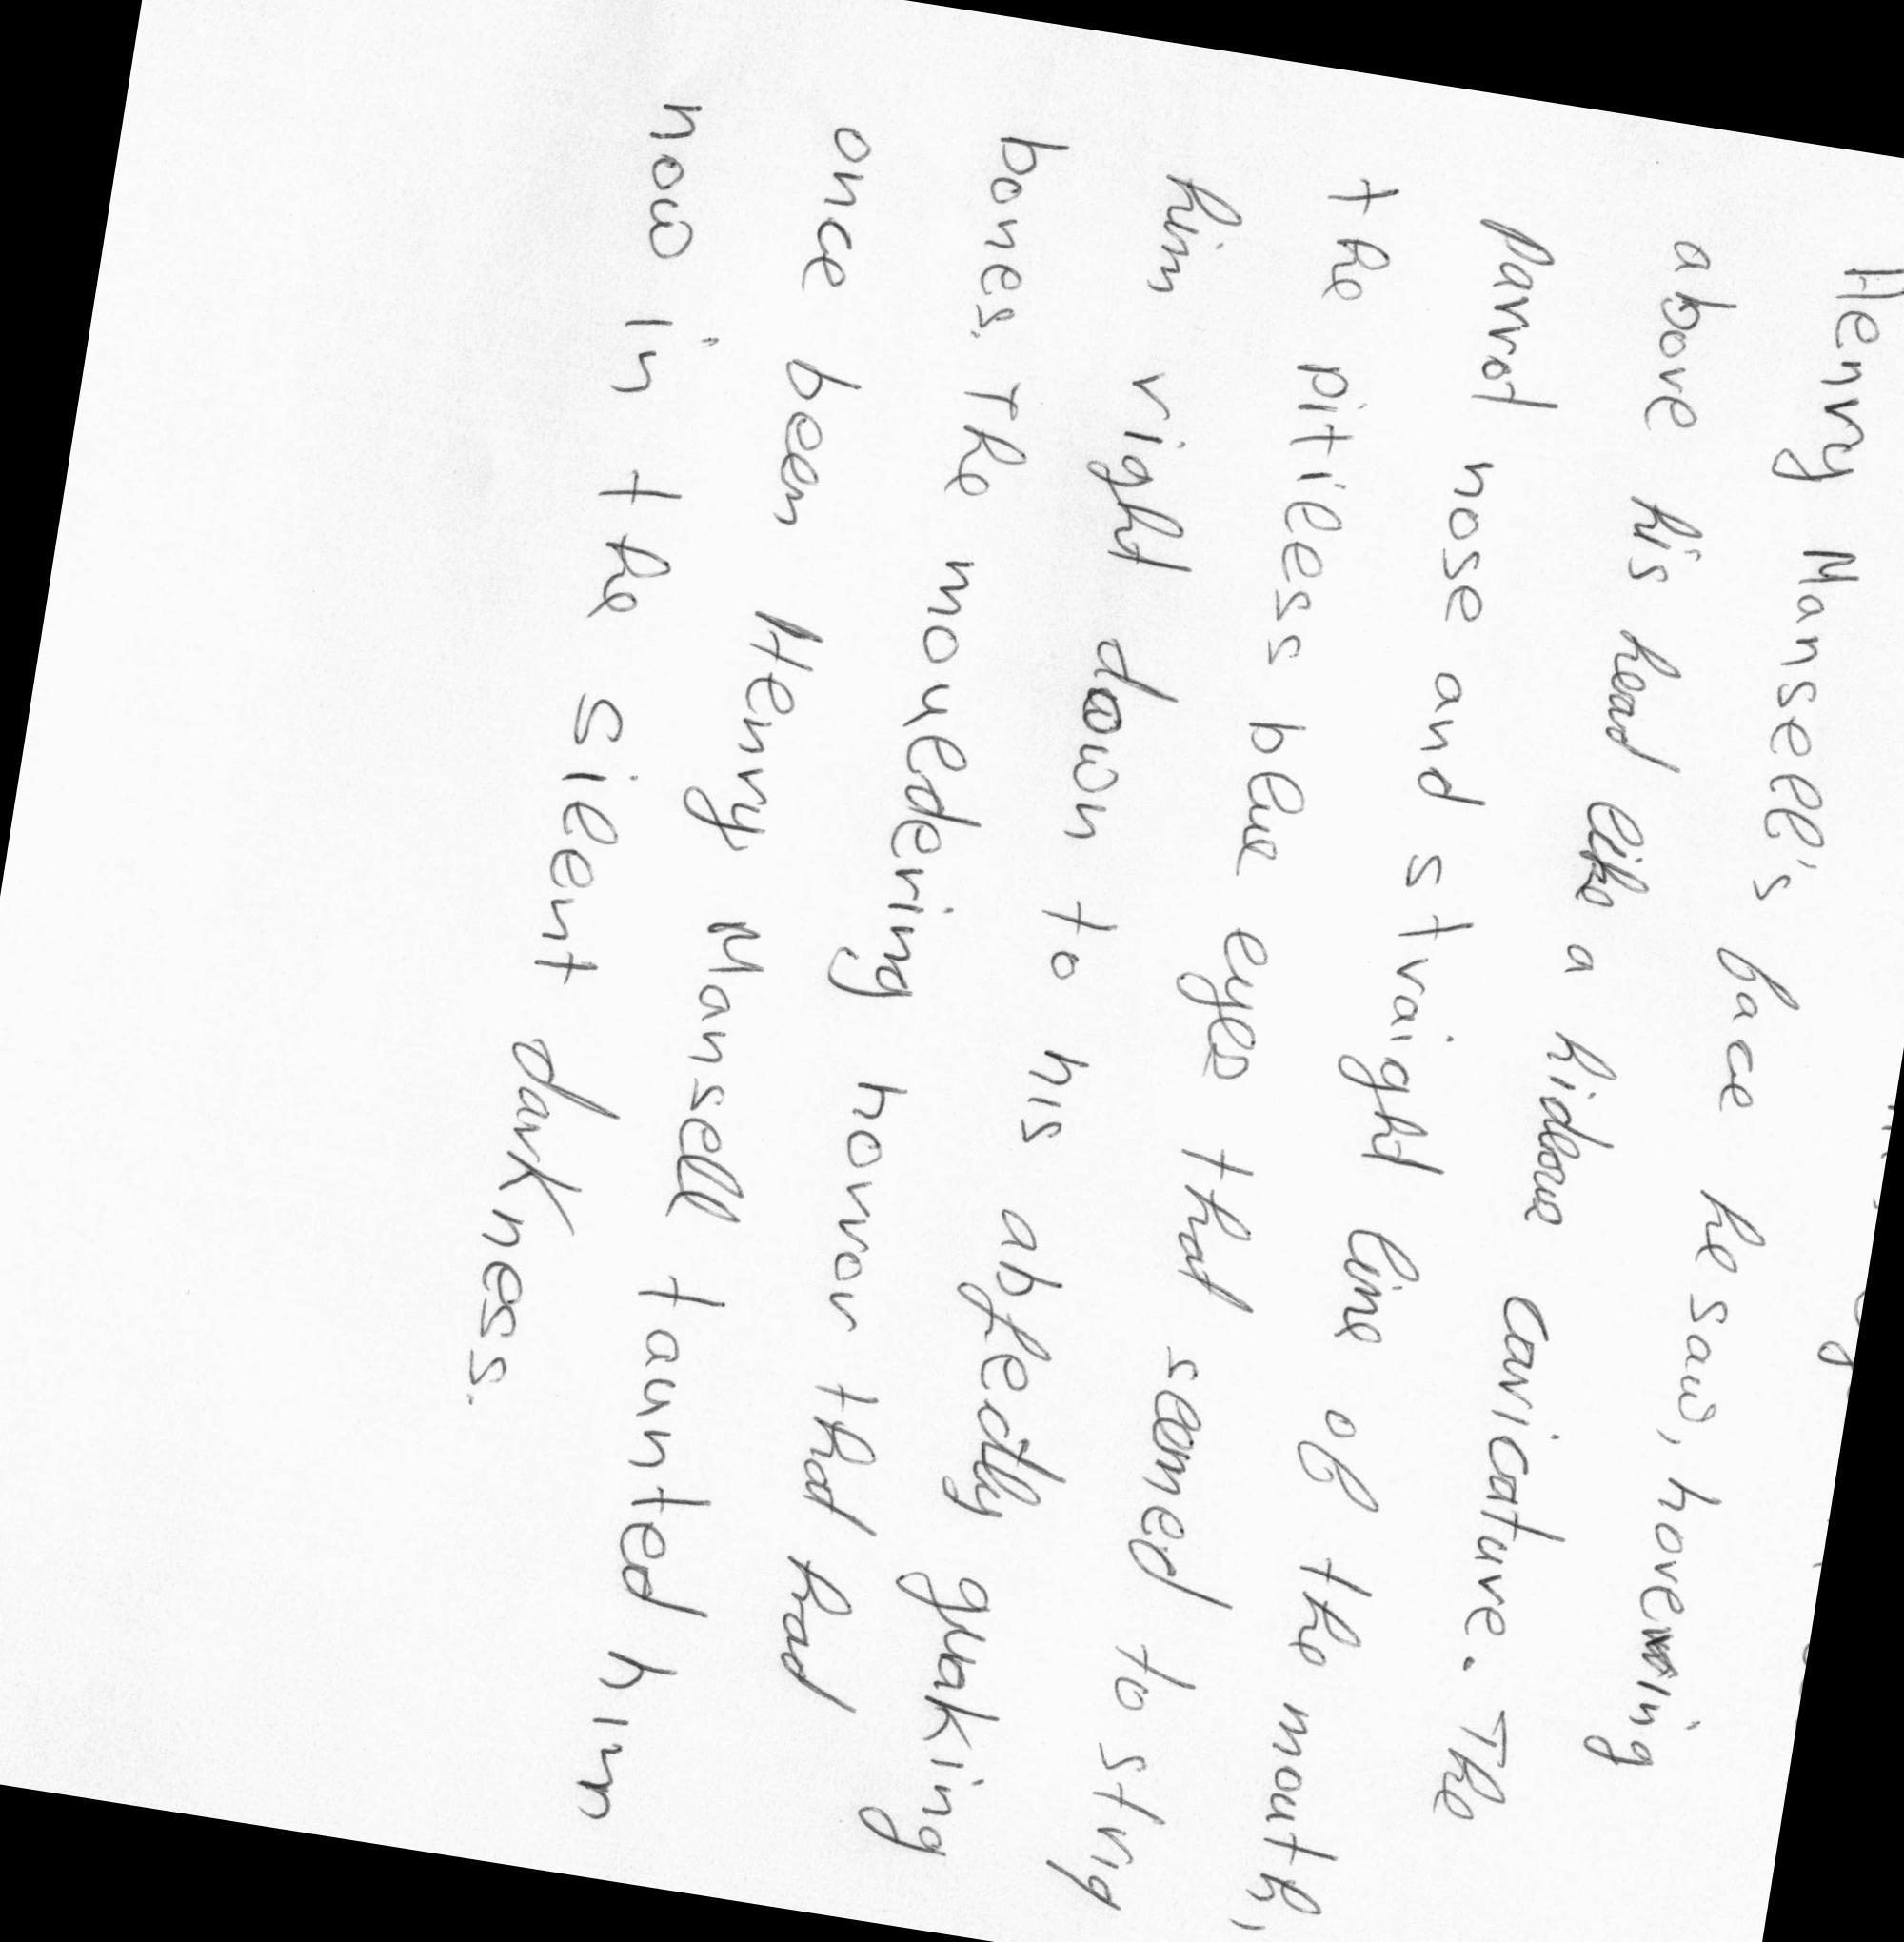 Henry Mansell's face he saw, hovering
above his head like a hideous caricature. The
parrot nose and straight line of the mouth,
the pitiless blue eyes that seemed to strig
him right down to his abjectly quaking
bones. The mouldering horror that had
once been Henry Mansell taunted him
now in the silent darkness.